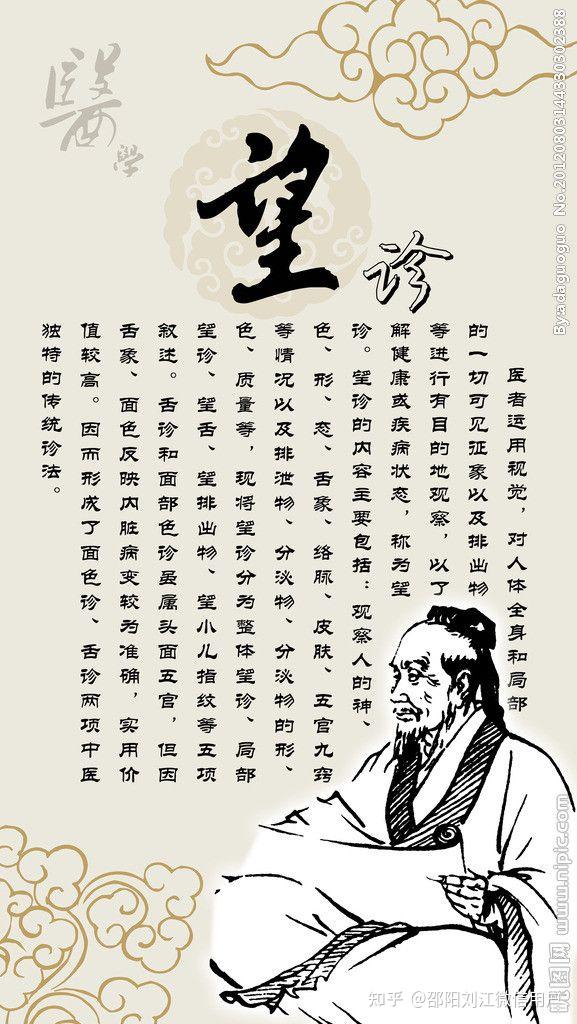 醫學
望诊
医者运用视觉，对人体全身和局部
的一切可见征象以及排出物
等进行有目的地观察，以了
解健康或疾病状态，称为望
诊。望诊的内容主要包括：观察人的神、
色、形、态、舌象、络脉、皮肤、五官九窍
等情况以及排泄物、分泌物、分泌物的形、
色、质量等，现将望诊分为整体望诊、局部
望诊、望舌、望排出物、望小儿指纹等五项
叙述。舌诊和面部色诊虽属头面五官，但因
舌象、面色反映内脏病变较为准确，实用价
值较高。因而形成了面色诊、舌诊两项中医
独特的传统诊法。
By:adaguoguo No.20120803144330302388
昵图网 www.nipic.com
知乎 @邵阳刘江微信用户